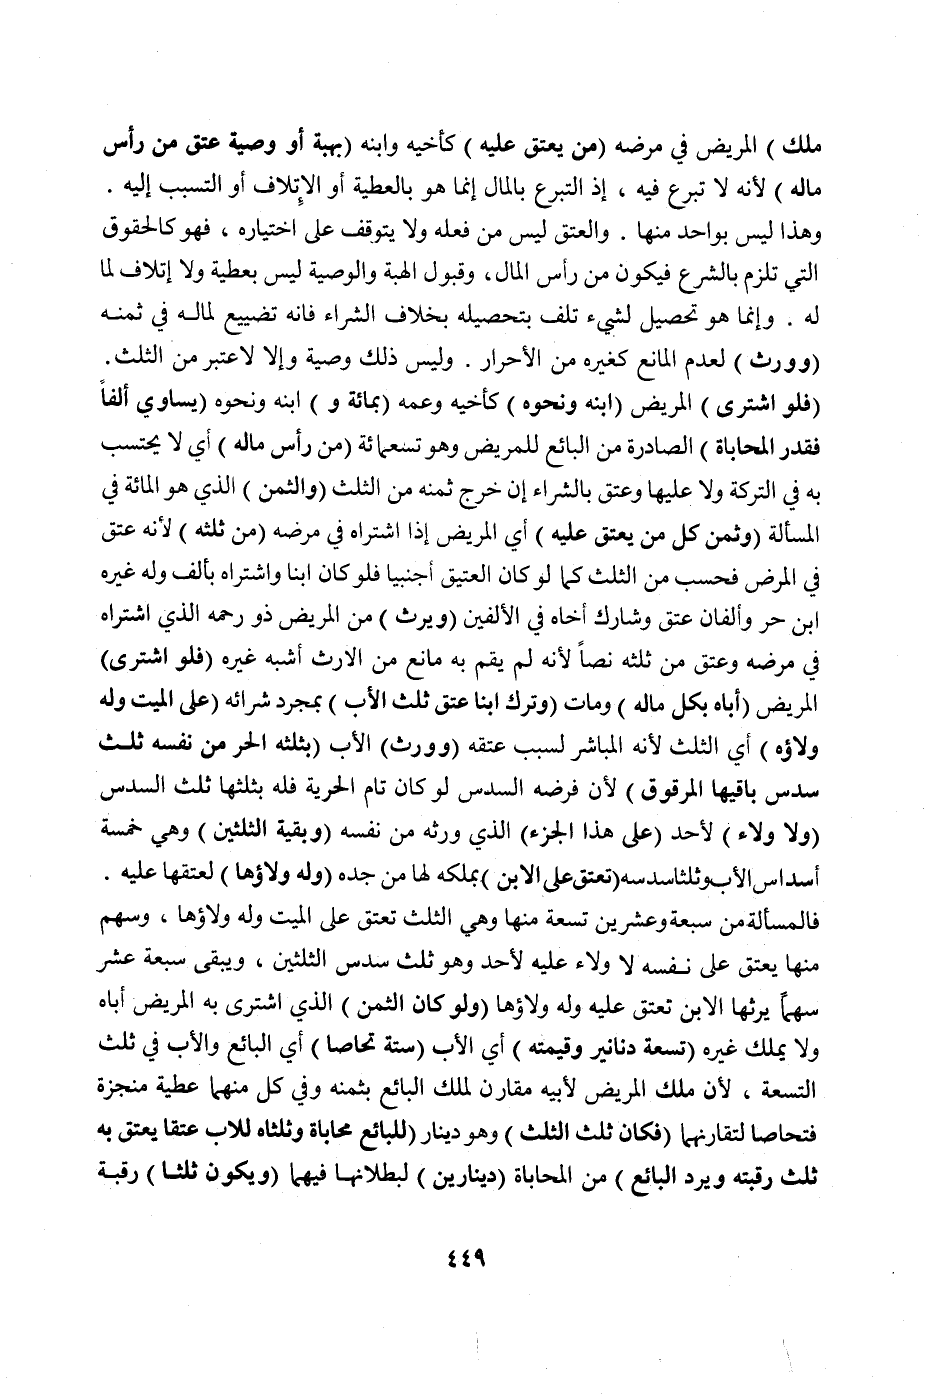 ملك ) المريض في مرضه (من يعتق عليه ) كأخيه وابنه (بهبة أو وصية عتق من رأس
ماله ) لأنه لا تبرع فيه ، إذ التبرع بالمال إنما هو بالعطية أو الإتلاف أو التسبب إليه .
وهذا ليس بواحد منها . والعتق ليس من فعله ولا يتوقف على اختياره ، فهو كالحقوق
التي تلزم بالشرع فيكون من رأس المال، وقبول الهبة والوصية ليس بعطية ولا إتلاف لما
له . وإنما هو تحصيل لشيء تلف بتحصيله بخلاف الشراء فانه تضييع لماله في ثمنه
(وورث ) لعدم المانع كغيره من الأحرار . وليس ذلك وصية وإلا لاعتبر من الثلث.
(فلو اشترى ) المريض (ابنه ونحوه ) كأخيه وعمه (بمائة و ) ابنه ونحوه (يساوي ألفاً
فقدر المحاباة ) الصادرة من البائع للمريض وهو تسعمائة (من رأس ماله ) أي لا يحتسب
به في التركة ولا عليها وعتق بالشراء إن خرج ثمنه من الثلث (والثمن ) الذي هو المائة في
المسألة (وثمن كل من يعتق عليه ) أي المريض إذا اشتراه في مرضه (من ثلثه ) لأنه عتق
في المرض فحسب من الثلث كما لو كان العتيق أجنبيا فلو كان ابنا واشتراه بألف وله غيره
ابن حر وألفان عتق وشارك أخاه في الألفين (ويرث ) من المريض ذو رحمه الذي اشتراه
في مرضه وعتق من ثلثه نصاً لأنه لم يقم به مانع من الارث أشبه غيره (فلو اشترى)
المريض (أباه بكل ماله ) ومات (وترك ابنا عتق ثلث الأب ) بمجرد شرائه (على الميت وله
ولاؤه ) أي الثلث لأنه المباشر لسبب عتقه (وورث) الأب (بثلثه الحر من نفسه ثلث
سدس باقيها المرقوق ) لأن فرضه السدس لو كان تام الحرية فله بثلثها ثلث السدس
(ولا ولاء ) لأحد (على هذا الجزء) الذي ورثه من نفسه (وبقية الثلثين ) وهي خمسة
أسداس الأب وثلثا سدسه (تعتق على الابن ) بملكه لها من جده (وله ولاؤها ) لعتقها عليه .
فالمسألة من سبعة وعشرين تسعة منها وهي الثلث تعتق على الميت وله ولاؤها ، وسهم
منها يعتق على نفسه لا ولاء عليه لأحد وهو ثلث سدس الثلثين ، ويبقى سبعة عشر
سهماً يرثها الابن تعتق عليه وله ولاؤها (ولو كان الثمن ) الذي اشترى به المريض أباه
ولا يملك غيره (تسعة دنانير وقيمته ) أي الأب (ستة تحاصا ) أي البائع والأب في ثلث
التسعة ، لأن ملك المريض لأبيه مقارن لملك البائع بثمنه وفي كل منهما عطية منجزة
فتحاصا لتقارنهما (فكان ثلث الثلث ) وهو دينار (للبائع محاباة وثلثاه للاب عتقا يعتق به
ثلث رقبته ويرد البائع ) من المحاباة (دينارين ) لبطلانها فيهما (ويكون ثلثا ) رقبة
٤٤٩